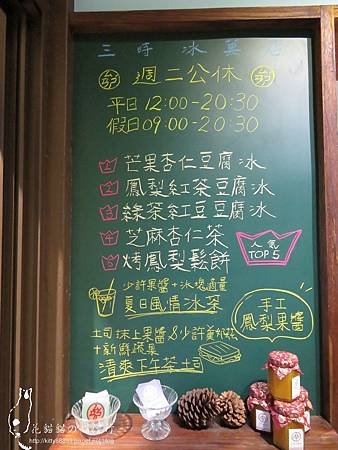 三時冰菓店
週二公休
平日 12:00-20:30
假日 09:00-20:30
1 芒果杏仁豆腐冰
2 鳳梨紅茶豆腐冰
3 綠茶紅豆豆腐冰
4 芝麻杏仁茶
5 烤鳳梨鬆餅
人氣
TOP 5
少許果醬+冰塊適量
夏日風情冰茶
手工
鳳梨果醬
土司抹上果醬&少許美乃滋
+新鮮蔬菓
清爽下午茶土司